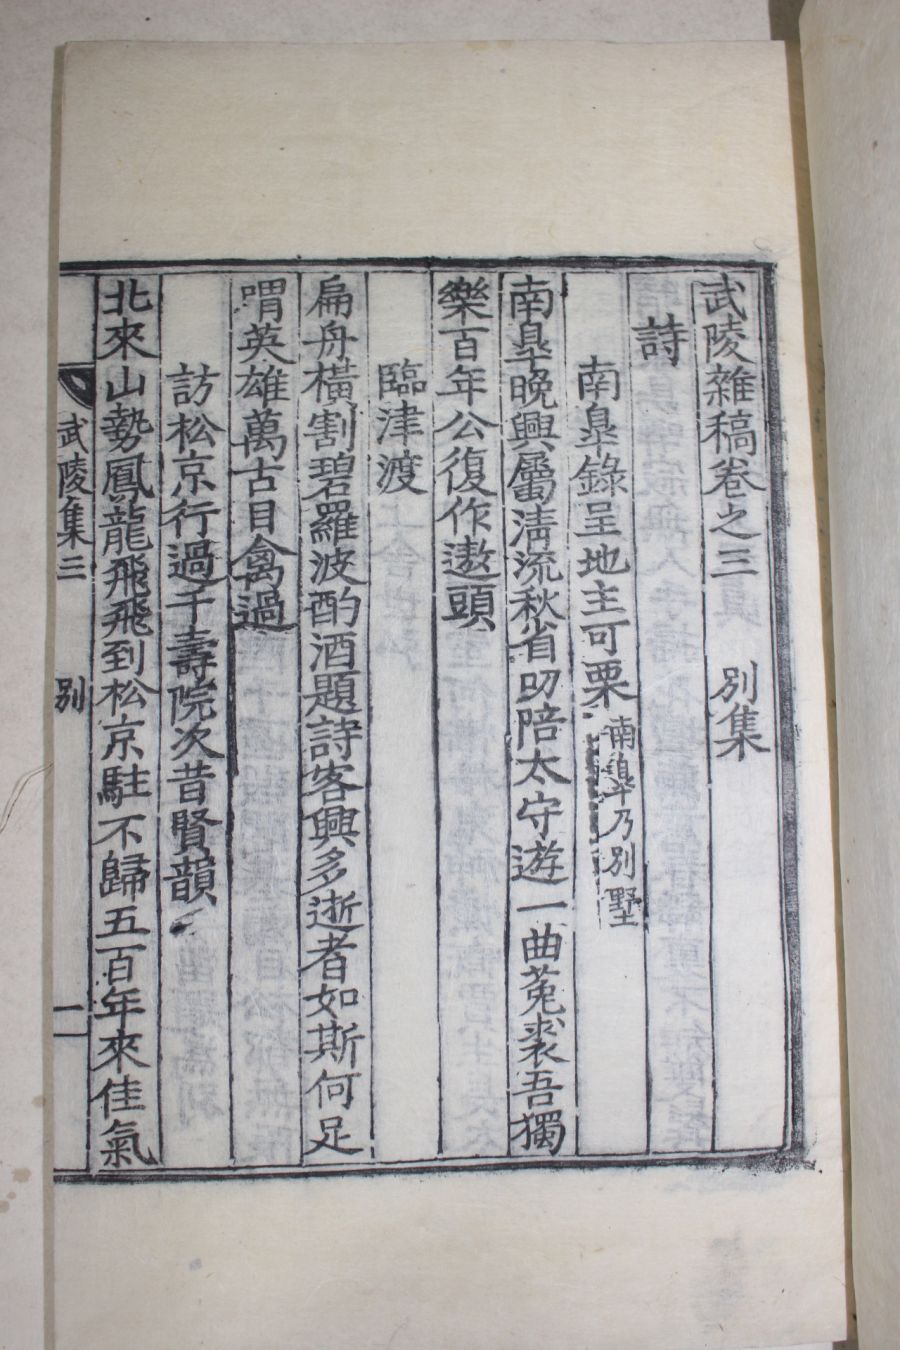 武陵雜稿卷之三　別集
詩
南臯錄呈地主可栗 南臯乃別墅
南臯晚興屬淸流秋省叨陪太守遊一曲菟裘吾獨
樂百年公復作遨頭
臨津渡
扁舟橫割碧羅波酌酒題詩客興多逝者如斯何足
喟英雄萬古目禽過
訪松京行過千壽院次昔賢韻
北來山勢鳳龍飛飛到松京駐不歸五百年來佳氣
武陵集三　別　一